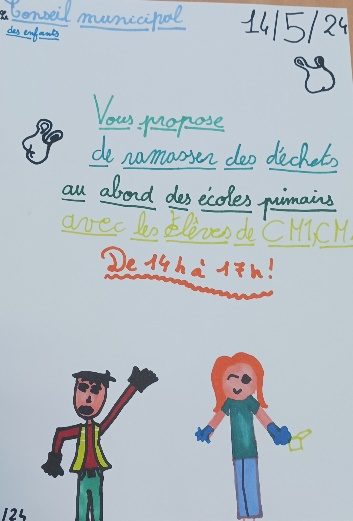 Le Conseil municipal
des enfants
14/5/24
Vous propose
de ramasser des déchets
au abord des écoles primairs
avec les Elèves de CM1, CM
De 14h à 17h!
/24